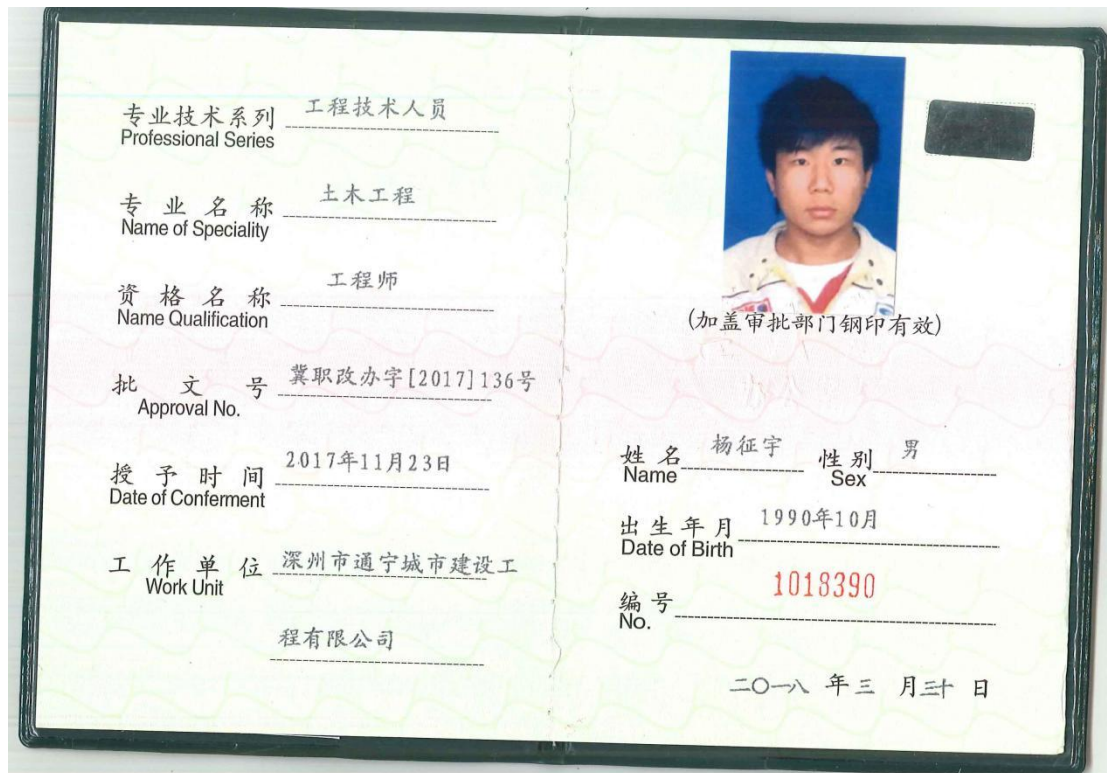 专业技术系列 工程技术人员
Professional Series
专业名称 土木工程
Name of Speciality
资格名称 工程师
Name Qualification
批文号 冀职改办字[2017]136号
Approval No.
授予时间 2017年11月23日
Date of Conferment
工作单位 深州市通宁城市建设工
Work Unit
程有限公司
(加盖审批部门钢印有效)
姓名 杨征宇 性别 男
Name Sex
出生年月 1990年10月
Date of Birth
编号 1018390
No.
二〇一八 年 三 月 三十 日